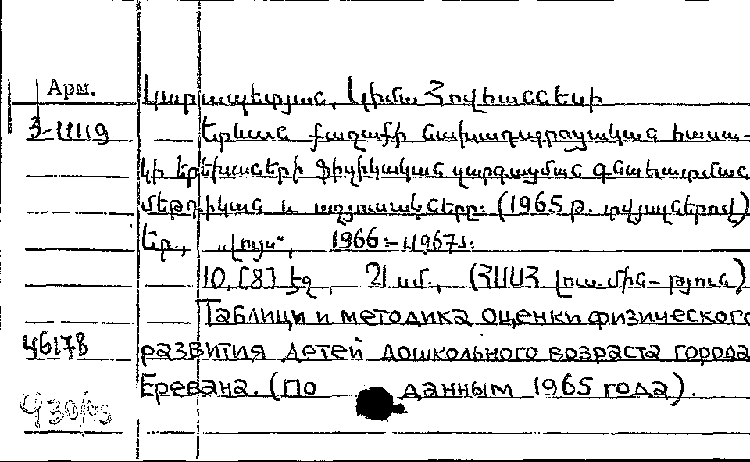 Арм.
Կարապետյան, Լիմա Հովհաննեսի
3-11119 Երևան քաղաքի նախադպրոցական հասա-
կի երեխաների ֆիզիկական զարգացման գնահատման
մեթոդիկան և աղյուսակները: (1965 թ. տվյալներով)
Եր., „Լույս“, 1966
10, [8] էջ, 21 սմ., (ՀՍՍՀ լուս. մին-թյուն)
Таблицы и методика оценки физического
46178 развития детей дошкольного возраста города
Еревана. (По данным 1965 года).